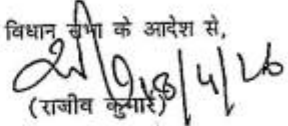 विधान सभा के आदेश से,
18/4/26
(राजीव कुमार)